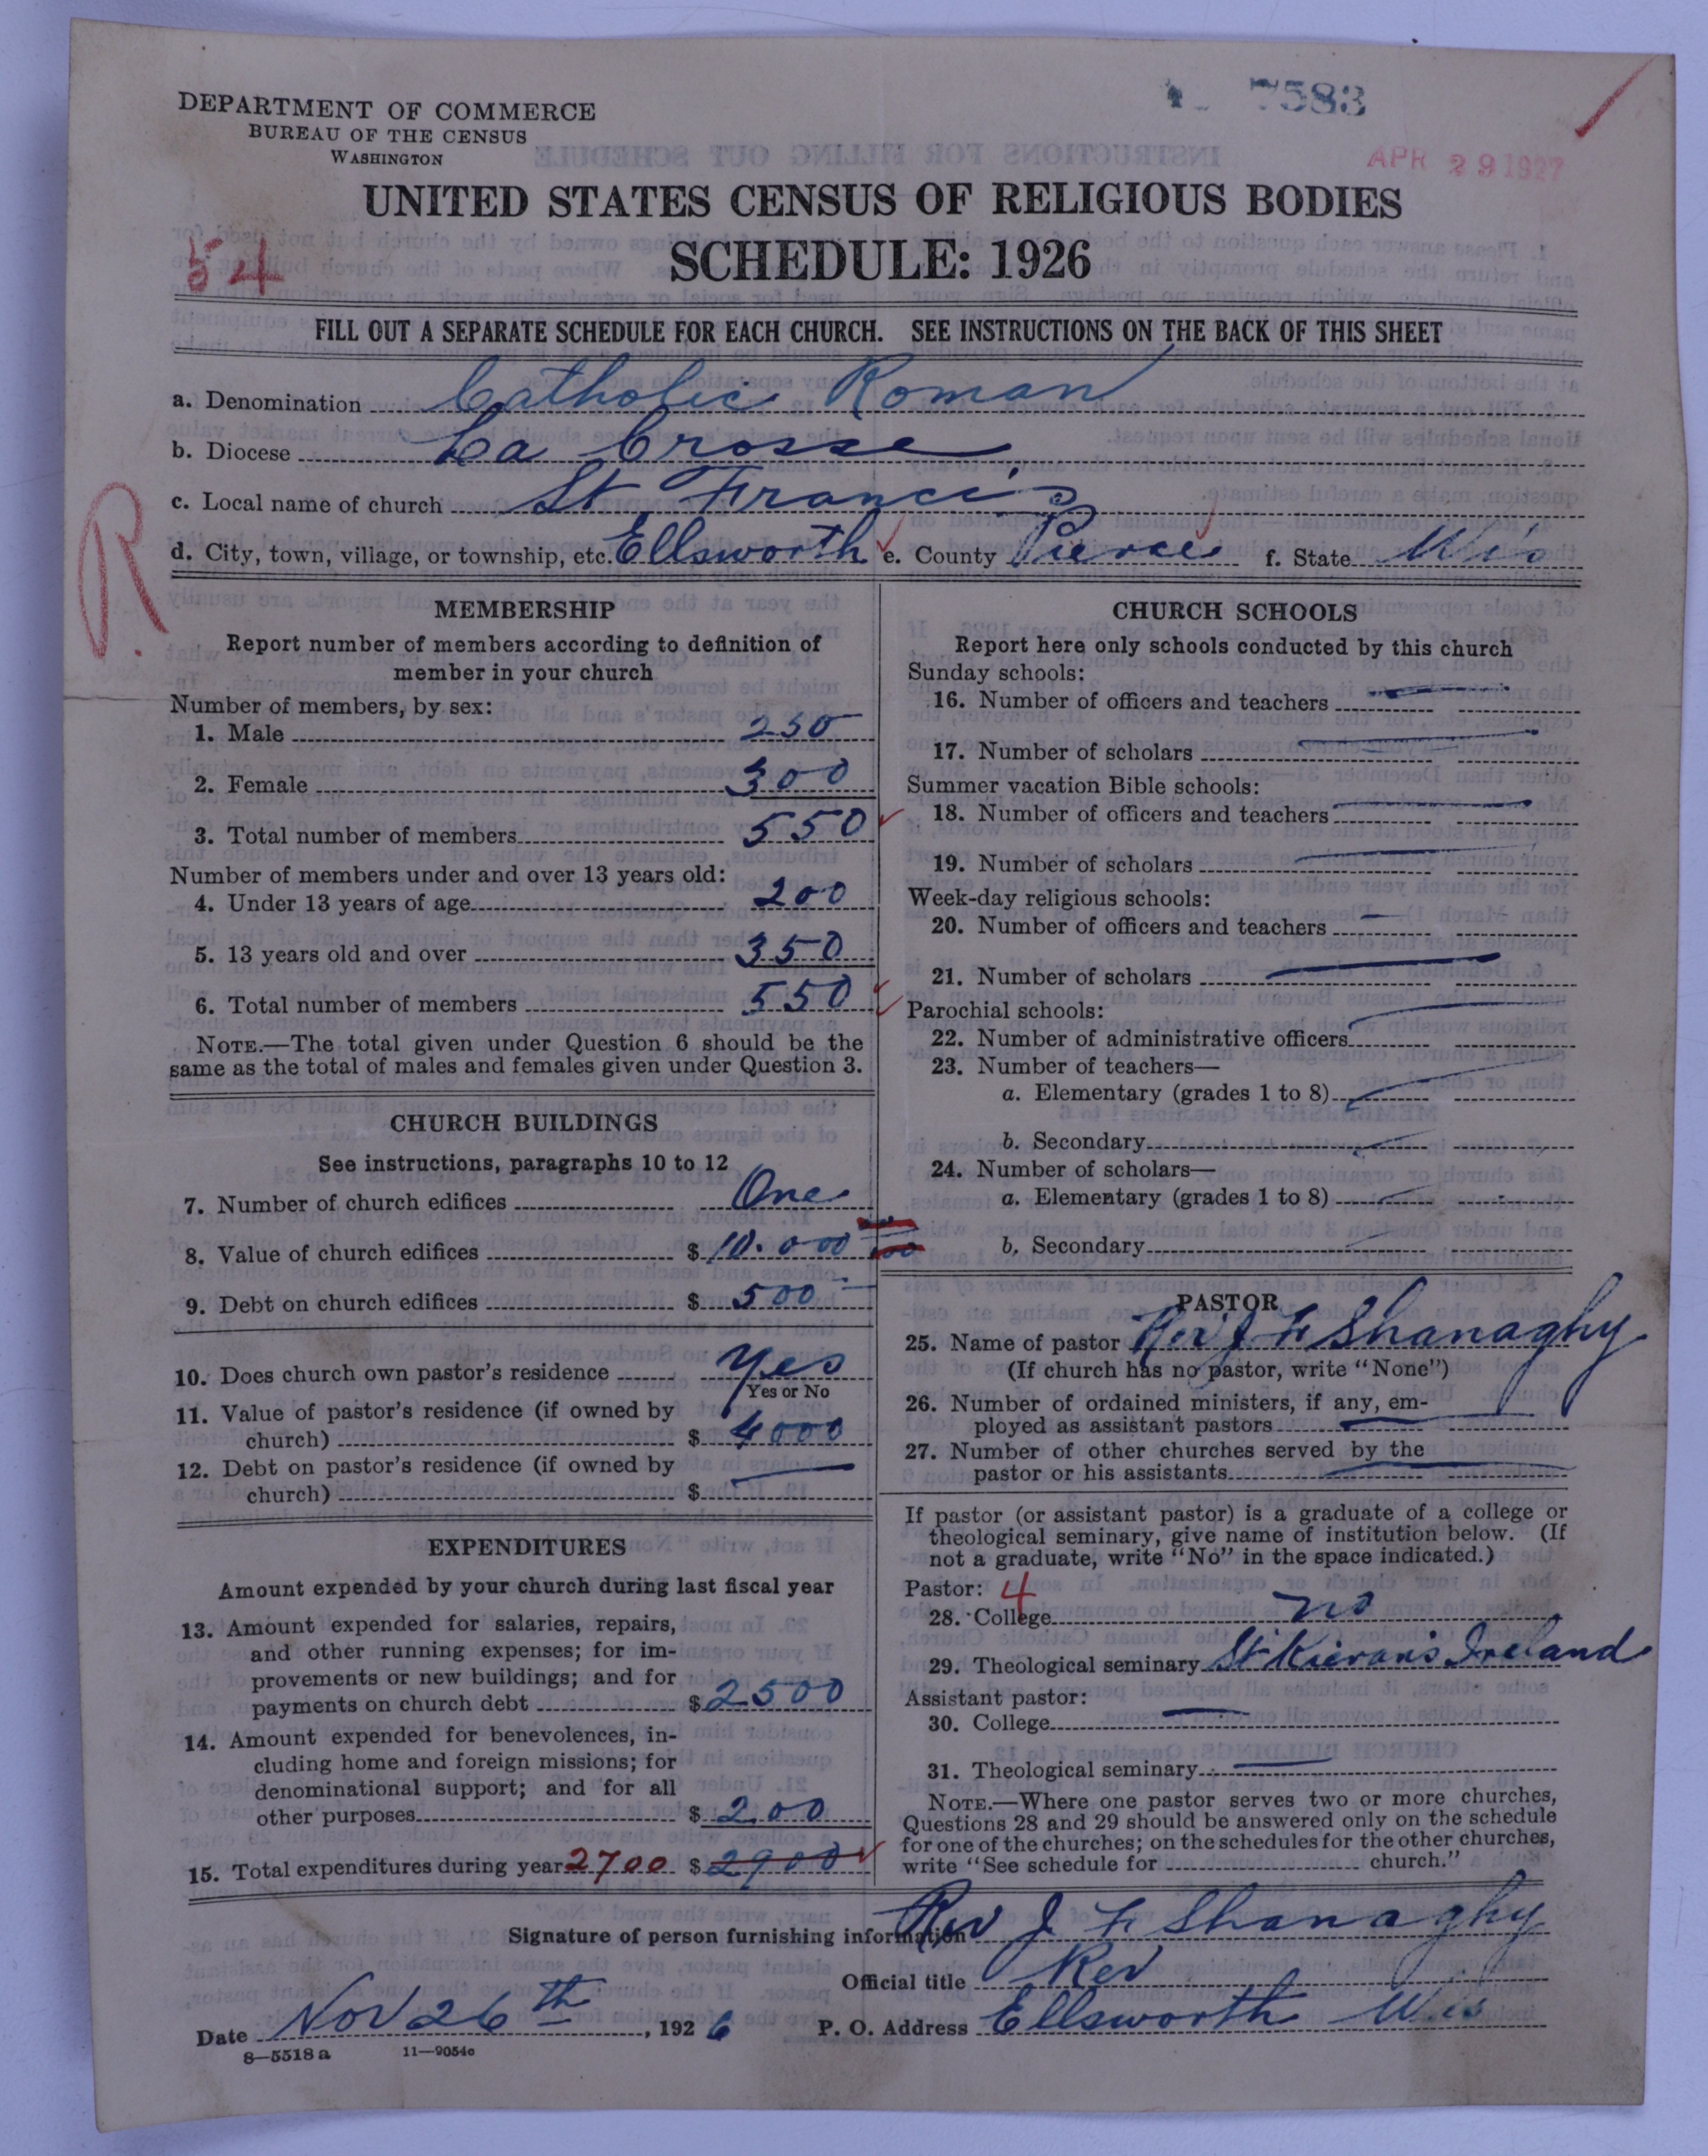 DEPARTMENT OF COMMERCE
BUREAU OF THE CENSUS
WASHINGTON
7583
APR 29 1927
UNITED STATES CENSUS OF RELIGIOUS BODIES
SCHEDULE: 1926
54
FILL OUT A SEPARATE SCHEDULE FOR EACH CHURCH. SEE INSTRUCTIONS ON THE BACK OF THIS SHEET
a. Denomination Catholic Roman
b. Diocese La Crosse
c. Local name of church St Francis
d. City, town, village, or township, etc. Ellsworth e. County Pierce f. State Wis
R.
MEMBERSHIP
Report number of members according to definition of
member in your church
Number of members, by sex:
1. Male 250
2. Female 300
3. Total number of members 550
Number of members under and over 13 years old:
4. Under 13 years of age 200
5. 13 years old and over 350
6. Total number of members 550
NOTE.—The total given under Question 6 should be the
same as the total of males and females given under Question 3.
CHURCH BUILDINGS
See instructions, paragraphs 10 to 12
7. Number of church edifices One
8. Value of church edifices $ 10.000
9. Debt on church edifices $ 500
10. Does church own pastor's residence Yes
Yes or No
11. Value of pastor's residence (if owned by
church) $ 4000
12. Debt on pastor's residence (if owned by
church) $ —
EXPENDITURES
Amount expended by your church during last fiscal year
13. Amount expended for salaries, repairs,
and other running expenses; for im-
provements or new buildings; and for
payments on church debt $ 2500
14. Amount expended for benevolences, in-
cluding home and foreign missions; for
denominational support; and for all
other purposes $ 200
15. Total expenditures during year 2700 $ 2900
CHURCH SCHOOLS
Report here only schools conducted by this church
Sunday schools:
16. Number of officers and teachers —
17. Number of scholars —
Summer vacation Bible schools:
18. Number of officers and teachers —
19. Number of scholars —
Week-day religious schools:
20. Number of officers and teachers —
21. Number of scholars —
Parochial schools:
22. Number of administrative officers —
23. Number of teachers—
a. Elementary (grades 1 to 8) —
b. Secondary —
24. Number of scholars—
a. Elementary (grades 1 to 8) —
b. Secondary —
PASTOR
25. Name of pastor Rev J F Shanaghy
(If church has no pastor, write "None")
26. Number of ordained ministers, if any, em-
ployed as assistant pastors —
27. Number of other churches served by the
pastor or his assistants —
If pastor (or assistant pastor) is a graduate of a college or
theological seminary, give name of institution below. (If
not a graduate, write "No" in the space indicated.)
Pastor: 4
28. College no
29. Theological seminary St Kieran's Ireland
Assistant pastor:
30. College —
31. Theological seminary —
NOTE.—Where one pastor serves two or more churches,
Questions 28 and 29 should be answered only on the schedule
for one of the churches; on the schedules for the other churches,
write "See schedule for church."
Signature of person furnishing information Rev J F Shanaghy
Official title Rev
Date Nov 26th, 1926 P. O. Address Ellsworth Wis
8—5518a 11—9054c